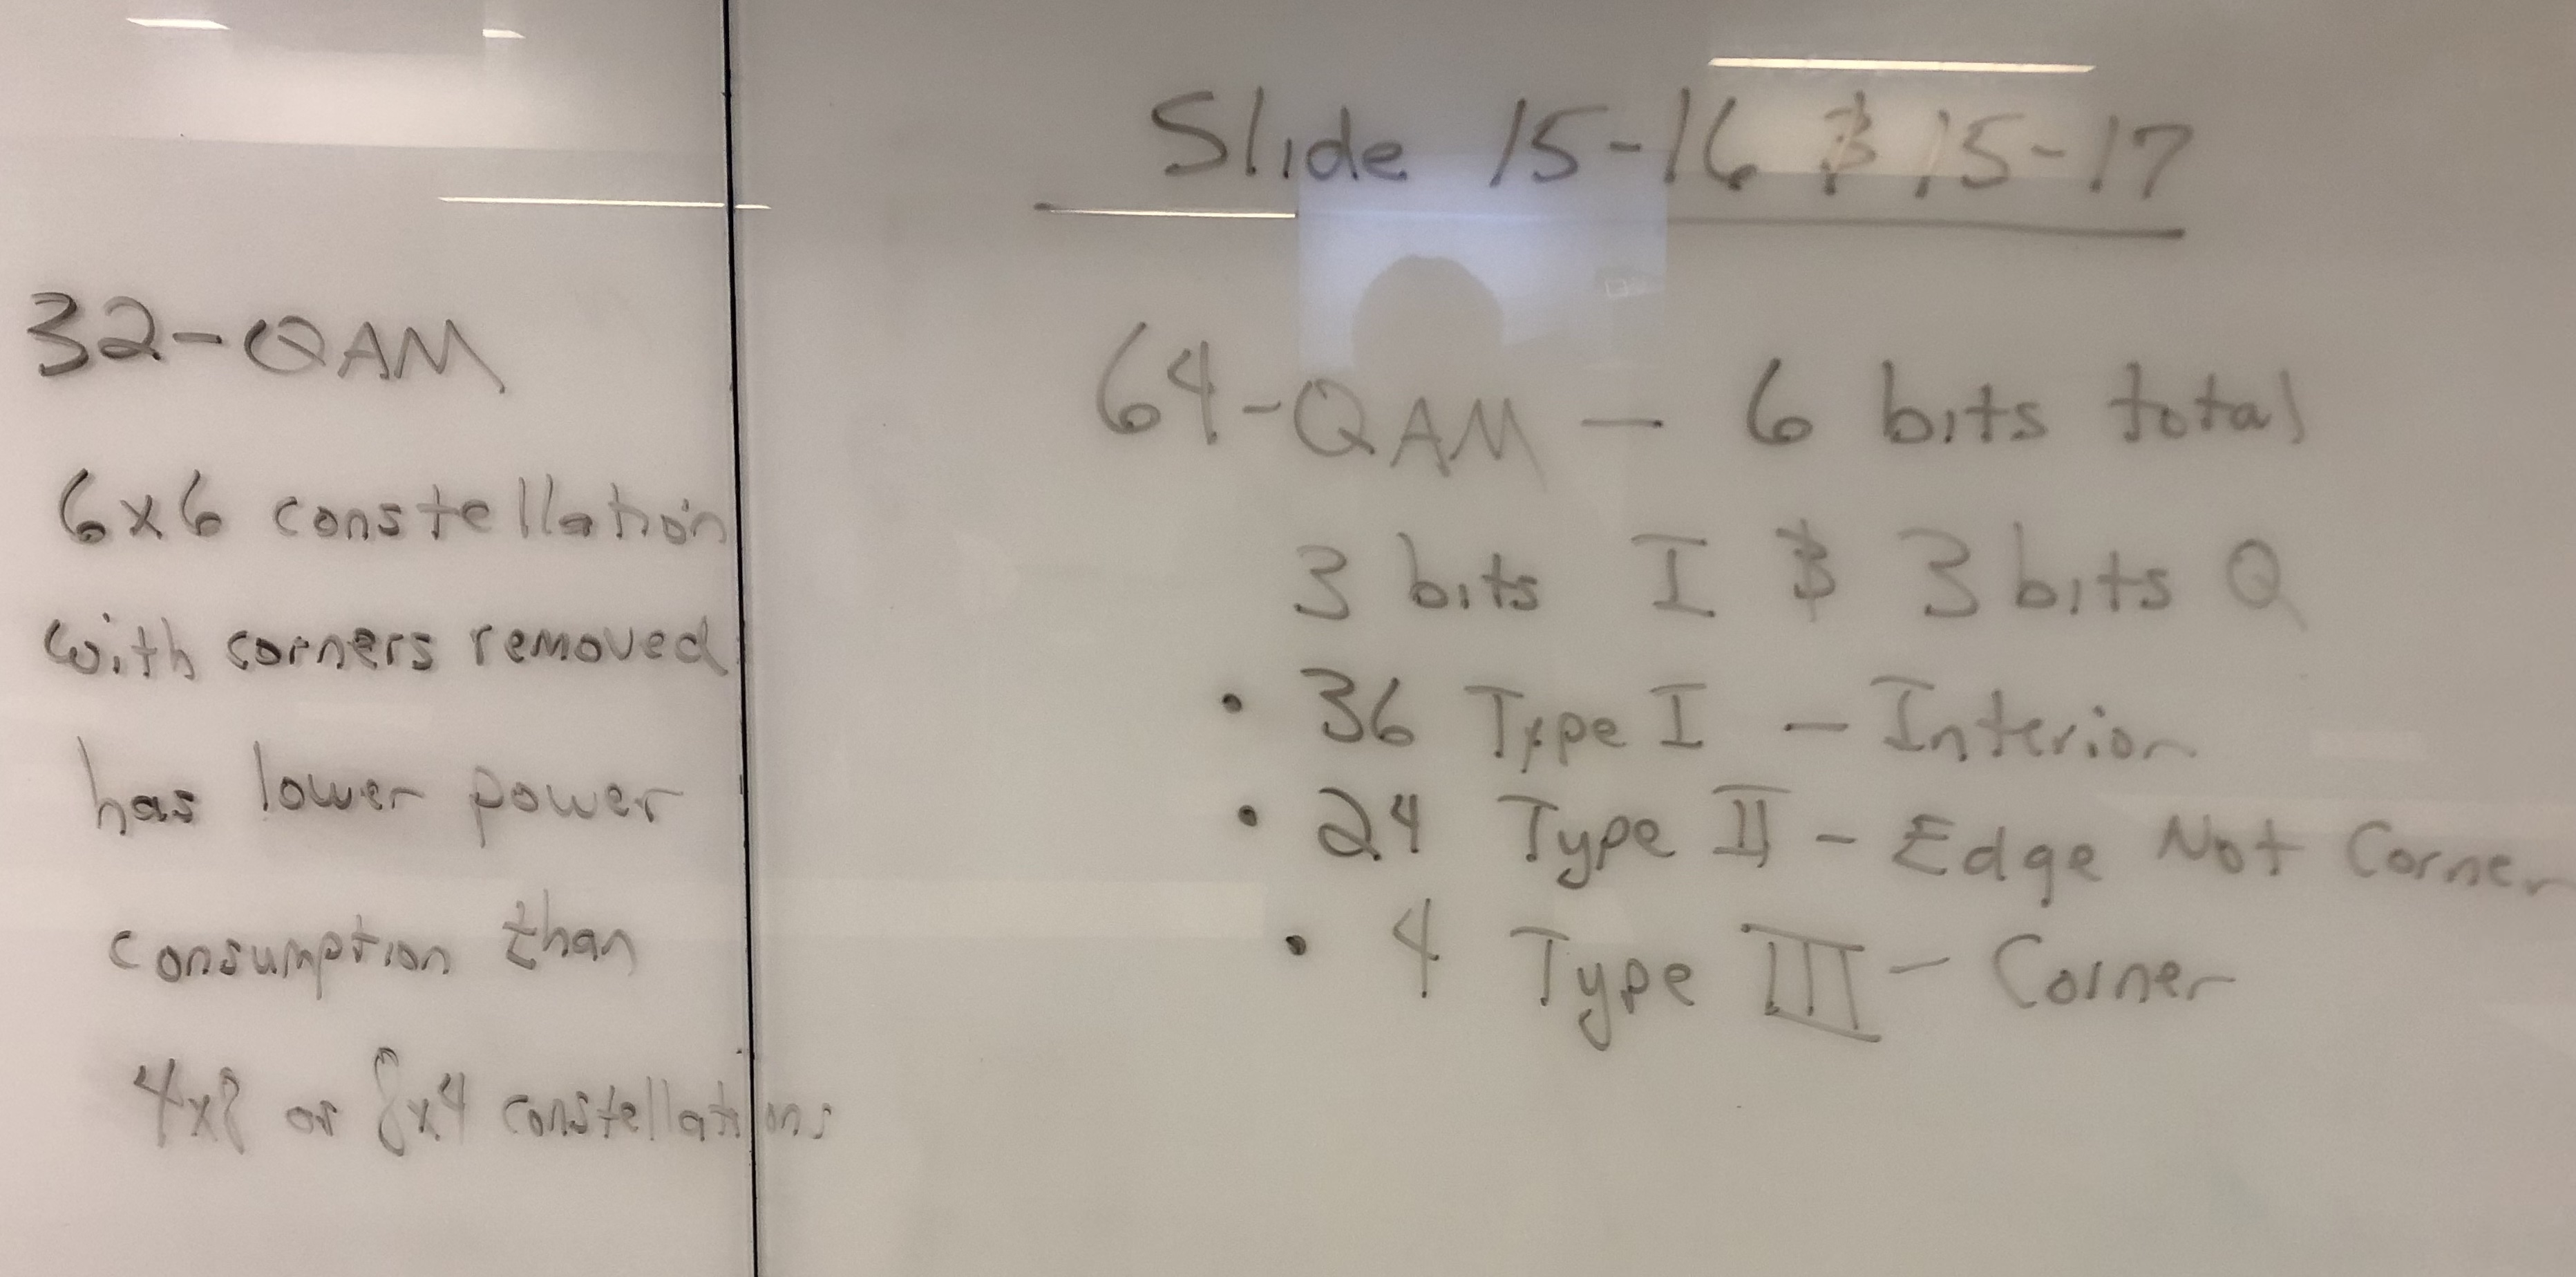 32-QAM
6x6 constellation
with corners removed
has lower power
consumption than
4x8 or 8x4 constellations
Slide 15-16 & 15-17
64-QAM – 6 bits total
3 bits I & 3 bits Q
• 36 Type I – Interior
• 24 Type II – Edge Not Corner
• 4 Type III – Corner